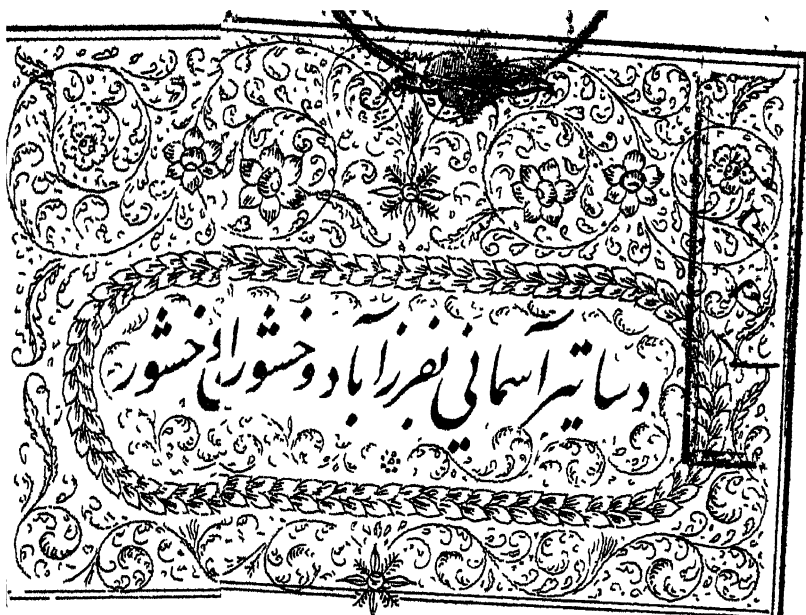 دساتیر آسمانی بفرزآباد وخشوران وخشور